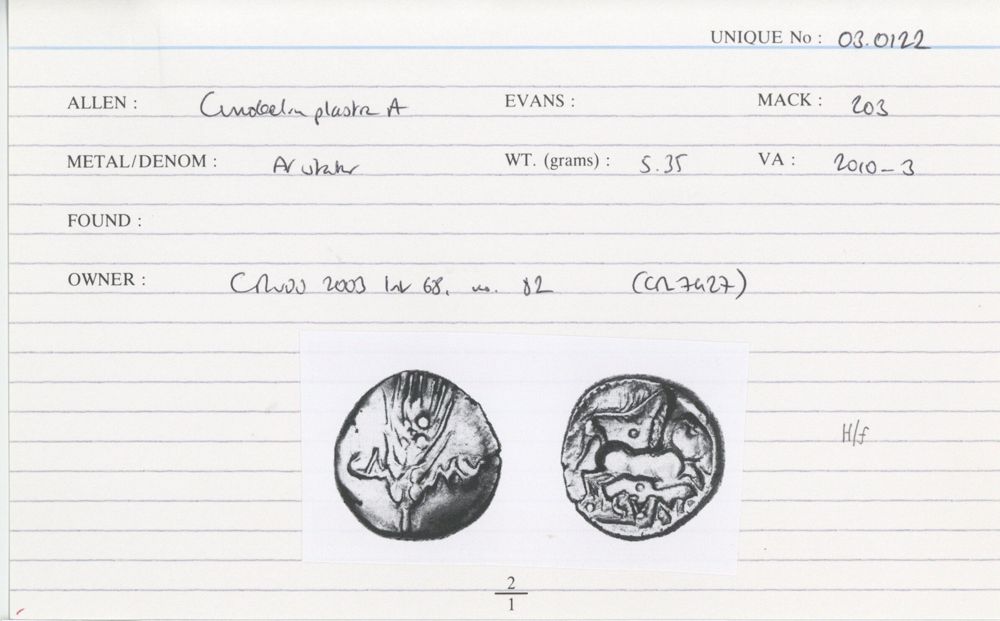 UNIQUE No : 03.0122
ALLEN : Cunobelin plastic A EVANS : MACK : 203
METAL/DENOM : AV stater WT. (grams) : 5.35 VA : 2010-3
FOUND :
OWNER : 2003 68, no. 82 (CR7427)
H/f
2
1